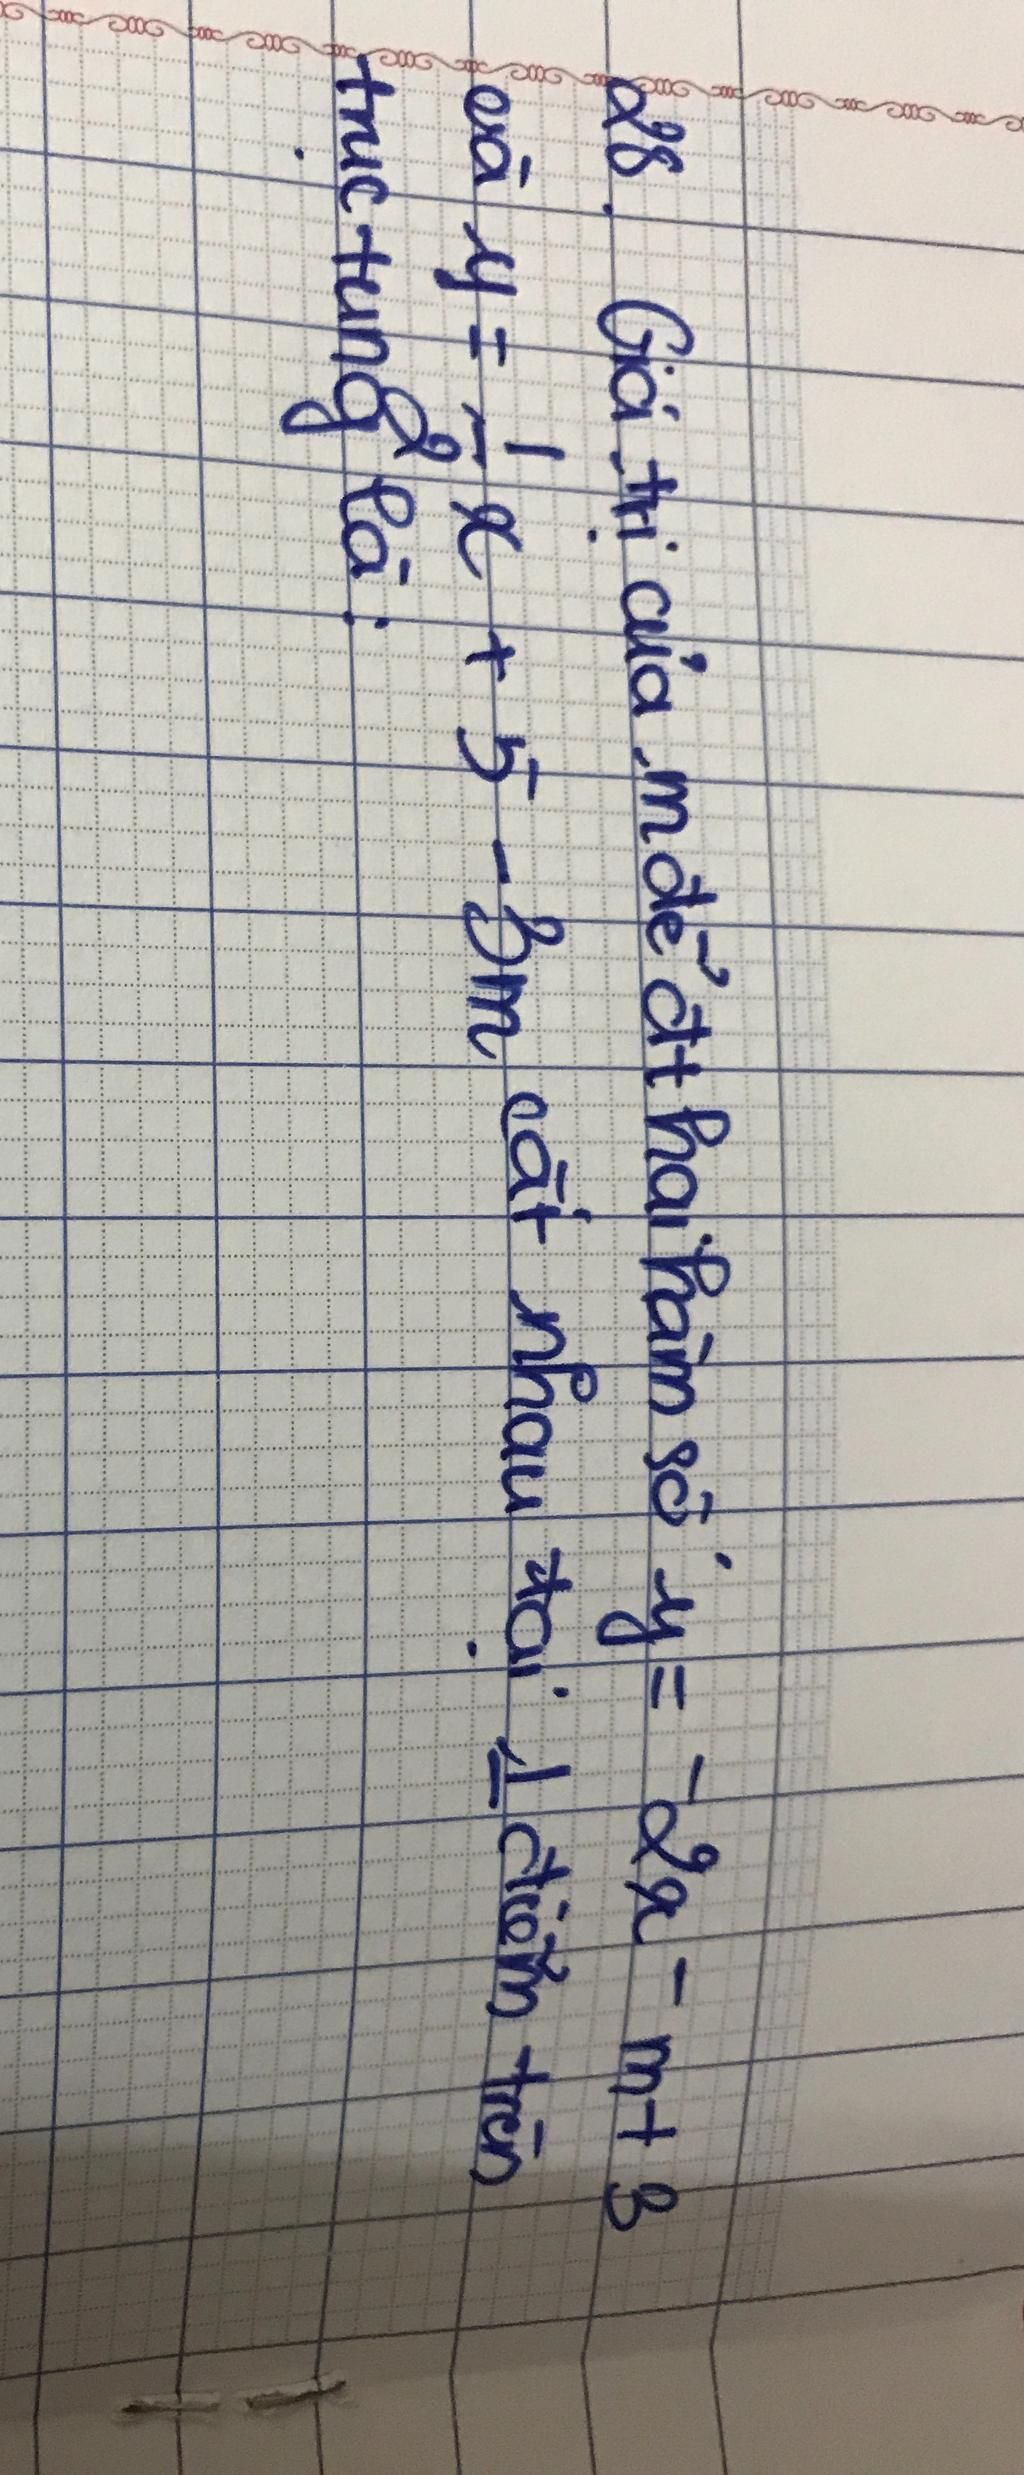 28. Giá trị của m để đt hai hàm số y = -2x - m + 3
và y = 1/2 x + 5 - 3m cắt nhau tại 1 điểm trên
trục tung là: